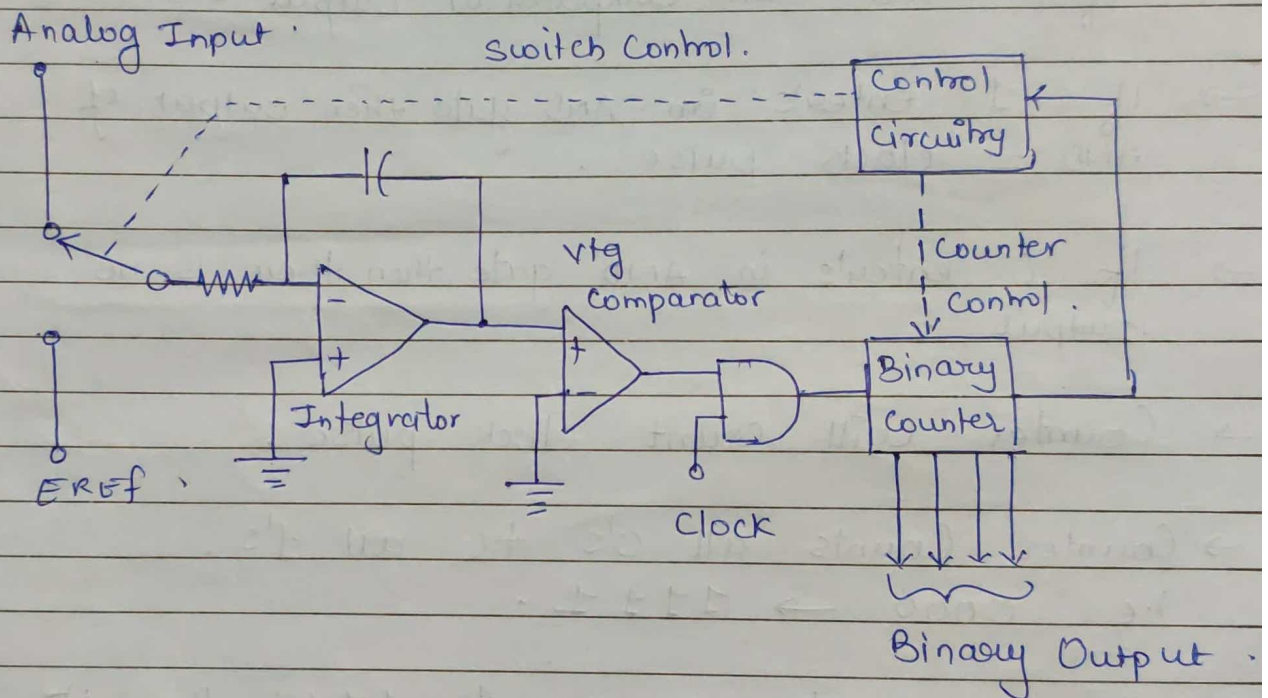 Analog Input .
Switch Control.
Control
Circuitry
Counter
Control .
Vtg
Comparator
-
+
Integrator
+
-
Binary
Counter
EREf .
Clock
Binary Output .